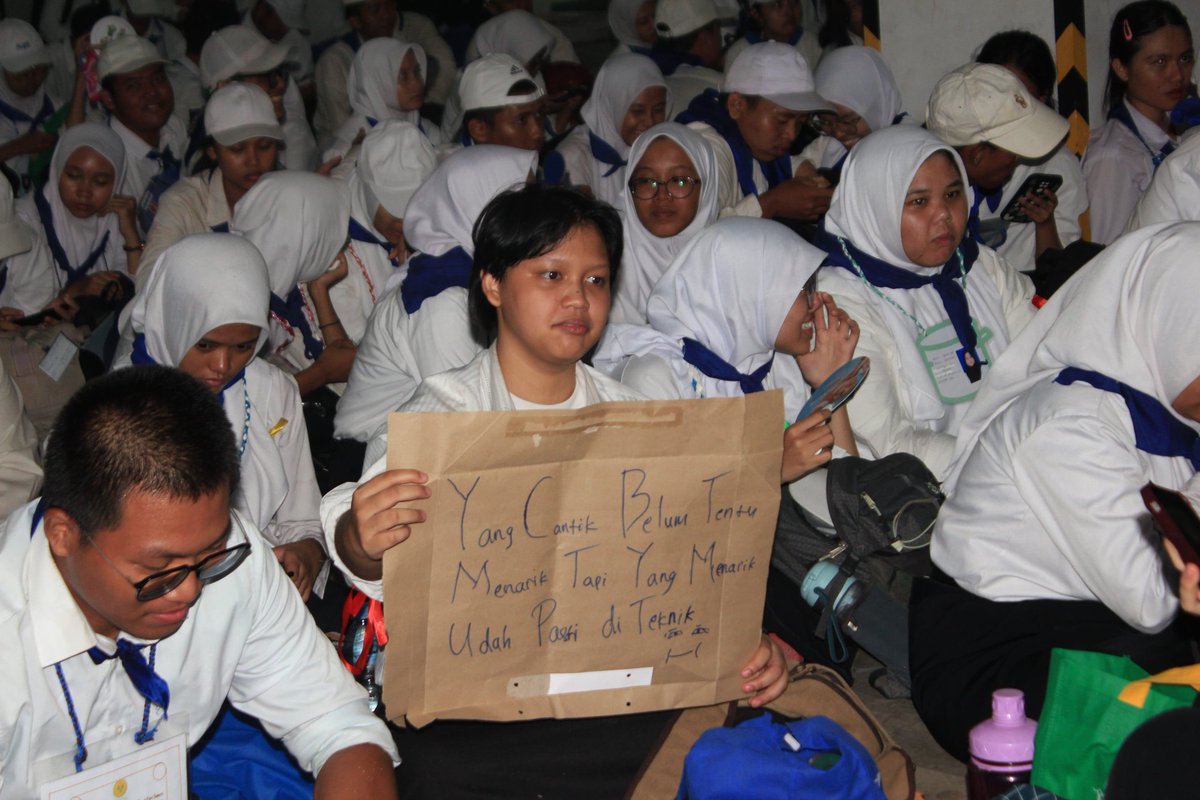 Yang Cantik Belum Tentu
Menarik Tapi Yang Menarik
Udah Pasti di Teknik